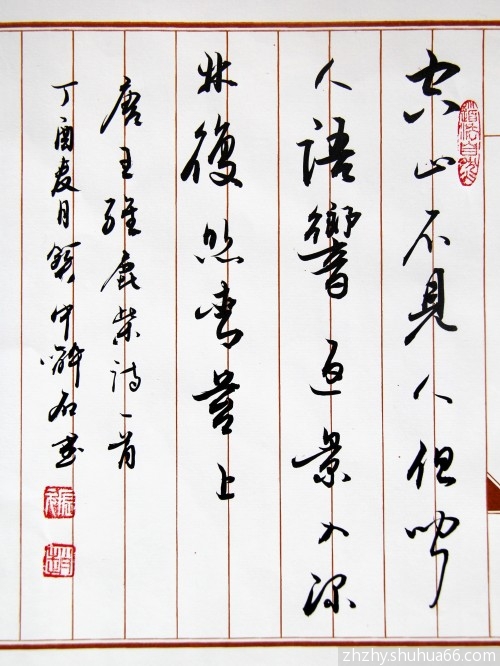 空山不見人但聞
人語響返景入深
林復照青苔上
唐王維鹿柴詩一首
丁酉夏月中石書
道法自然
zhzhy.shuhua66.com